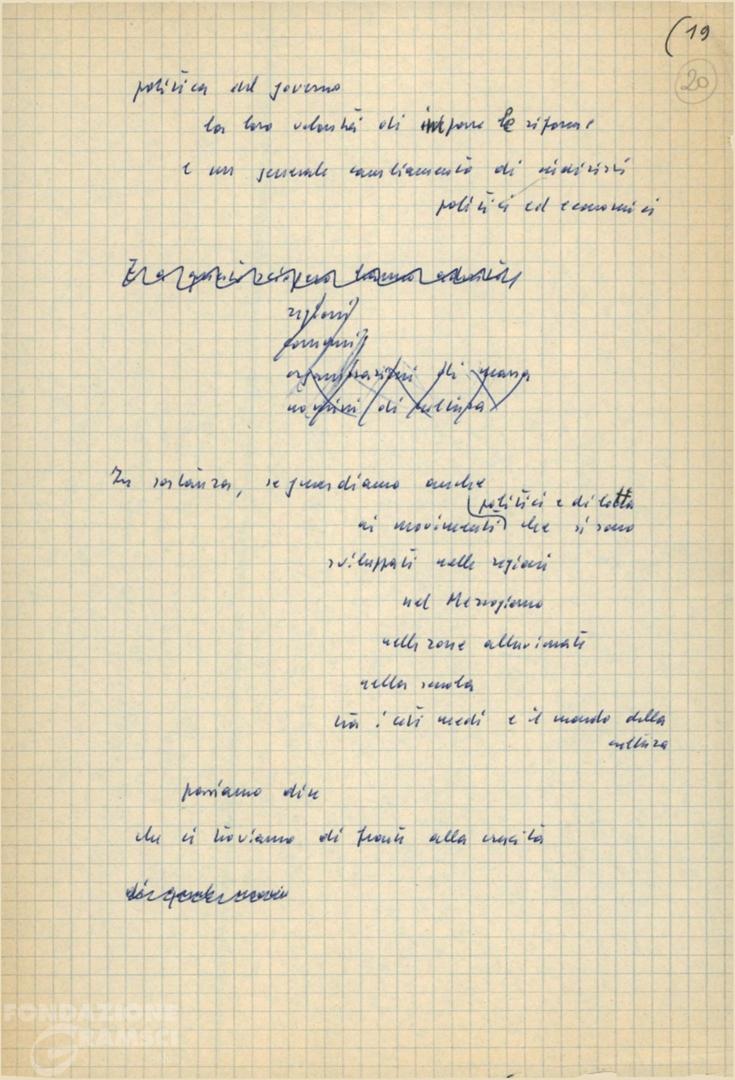 (19
20
politica del governo
la loro volontà di imporre le riforme
e un generale cambiamento di indirizzi
politici ed economici
regioni
comuni
organizzazioni di massa
uomini di cultura
In sostanza, se guardiamo anche
politici e di lotta
ai movimenti che si sono
sviluppati nelle regioni
nel Mezzogiorno
nelle zone alluvionate
nella scuola
tra i ceti medi e il mondo della
cultura
possiamo dire
che ci troviamo di fronte alla crescita
di
FONDAZIONE
GRAMSCI